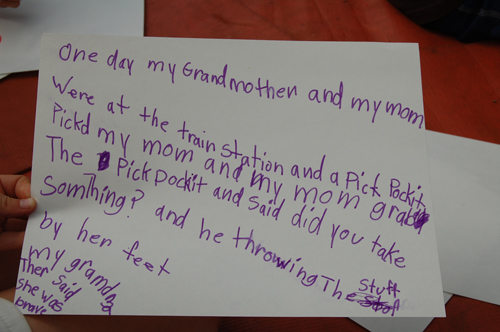 One day my Grandmother and my mom
Were at the train station and a Pick Pockit
Pickd my mom and my mom grab
The Pick pockit and said did you take
Somthing? and he throwing The Stuff
by her feet
my grandma
Then said
she was
brave